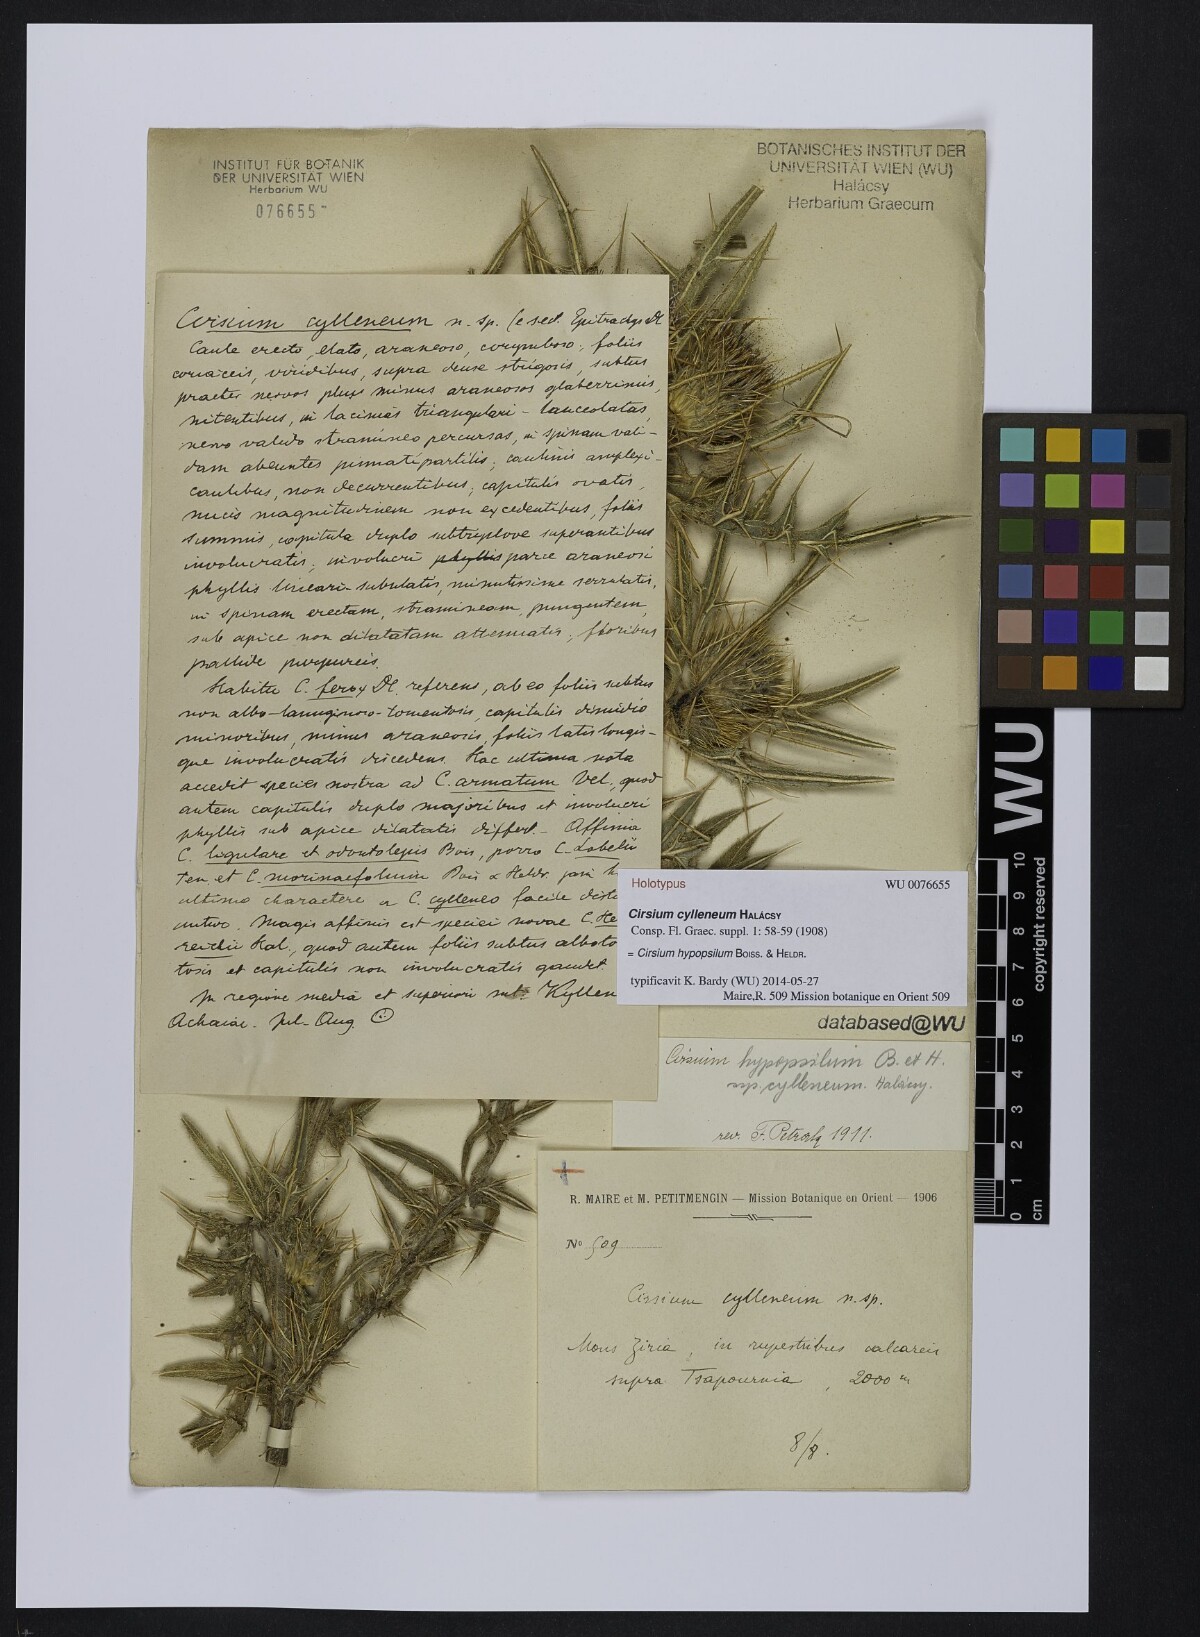 INSTITUT FÜR BOTANIK
DER UNIVERSITÄT WIEN
Herbarium WU
076655
BOTANISCHES INSTITUT DER
UNIVERSITÄT WIEN (WU)
Halácsy
Herbarium Graecum
Cirsium cylleneum n. sp. (e sect. Epitrachys DC
Caule erecto, elato, araneoso, corymboso; foliis
coriaceis, viridibus, supra dense strigosis, subtus
praeter nervos plus minus araneosos glaberrimis,
nitentibus, in lacinias triangulari-lanceolatas,
nervo valido stramineo percursas, in spinam vali-
dam abeuntes pinnatipartitis; caulinis amplexi-
caulibus, non decurrentibus; capitulis ovatis,
nucis magnitudinem non excedentibus, foliis
summis, capitula duplo subtriplove superantibus
involucratis; involucri phyllis parce araneosi
phyllis lineari-subulatis, minutissime serrulatis,
in spinam erectam, stramineam, pungentem,
sub apice non dilatatam attenuatis; floribus
pallide purpureis.
Habitu C. ferox DC. referens, ab eo foliis subtus
non albo-lanuginoso-tomentosis, capitulis dimidio
minoribus, minus araneosis, foliis latis longis-
que involucratis discedens. Hac ultima nota
accedit species nostra ad C. armatum Vel., quod
autem capitulis duplo majoribus et involucri
phyllis sub apice dilatatis differt. Affinia
C. ligulare et odontolepis Bois, porro C. Lobelii
Ten et C. morinaefolium Bois & Heldr. jam h
ultimo charactere a C. cylleneo facile dist
untur. Magis affinis est speciei novae C. He
reichii Hal., quod autem foliis subtus alboto
tosis et capitulis non involucratis gaudet.
In regione media et superiori mt. Kyllen
Achaiae. Jul-Aug.
Holotypus WU 0076655
Cirsium cylleneum HALÁCSY
Consp. Fl. Graec. suppl. 1: 58-59 (1908)
= Cirsium hypopsilum BOISS. & HELDR.
typificavit K. Bardy (WU) 2014-05-27
Maire,R. 509 Mission botanique en Orient 509
databased@WU
Cirsium hypopsilum B. et H.
ssp. cylleneum. Halácsy.
rev. F. Petrak 1911.
R. MAIRE et M. PETITMENGIN — Mission Botanique en Orient — 1906
No 509
Cirsium cylleneum n. sp.
Mons Ziria, in rupestribus calcareis
supra Tsapournia, 2000 m
8/8.
WU
0 1 2 3 4 5 6 7 8 9 10
cm
copyright reserved